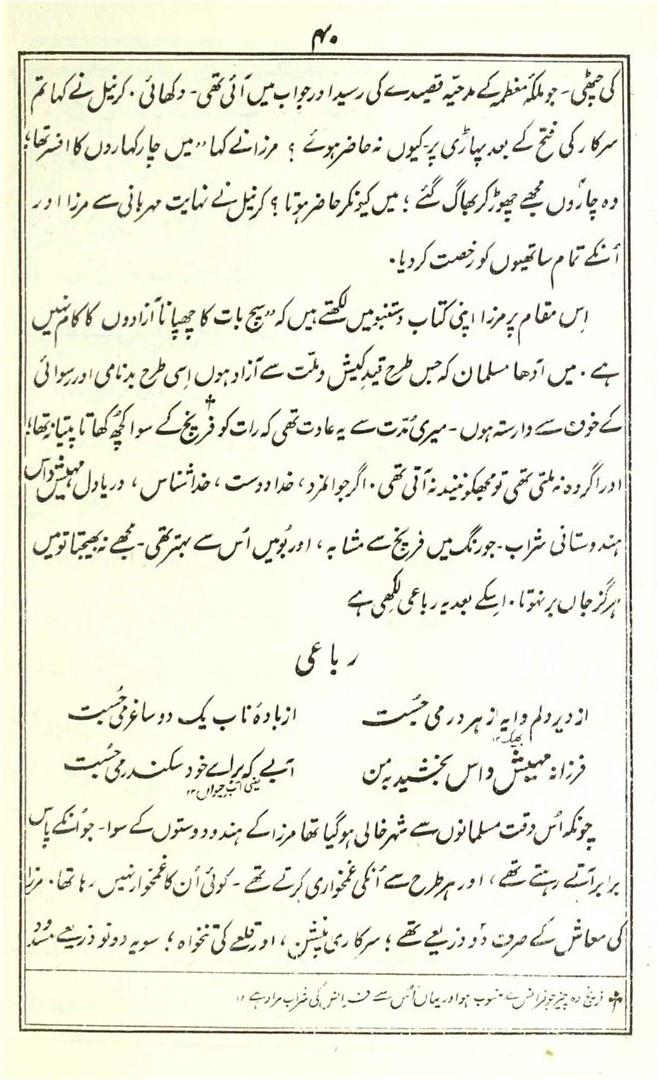 ۴۰
کی چٹھی۔ جو ملکۂ معظمہ کے مدحیہ قصیدے کی رسید اور جواب میں آئی تھی۔ دکھائی۔ کرنیل نے کہا تم
سرکار کی فتح کے بعد پہاڑی پر کیوں نہ حاضر ہوئے؟ مرزا نے کہا ”میں چار کہاروں کا افسر تھا؛
وہ چاروں مجھے چھوڑ کر بھاگ گئے؛ میں کیونکر حاضر ہوتا؟ کرنیل نے نہایت مہربانی سے مرزا اور
اُنکے تمام ساتھیوں کو رخصت کر دیا۔
اِس مقام پر مرزا اپنی کتاب دستنبو میں لکھتے ہیں کہ ”سچ بات کا چھپانا آزادوں کا کام نہیں
ہے۔ میں آدھا مسلمان کہ جس طرح قیدِ کیش و ملت سے آزاد ہوں اِسی طرح بدنامی اور رسوائی
کے خوف سے وارستہ ہوں۔ میری مُدّت سے یہ عادت تھی کہ رات کو فریخ کے سوا کچھ کھاتا پیتا نہ تھا؛
اور اگر وہ نہ ملتی تھی تو مجھکو نیند نہ آتی تھی۔ اگر جوانمرد، خدا دوست، خدا شناس، دریا دل مہیش داس
ہندوستانی شراب۔ جو رنگ میں فریخ سے مشابہ، اور بُو میں اُس سے بہتر تھی۔ مجھے نہ بھیجتا تو میں
ہرگز جاں بر نہوتا۔ اِسکے بعد یہ رباعی لکھی ہے
رباعی
از دیر دلم وایہ از ہر در می جُست از بادۂ ناب یک دو ساغر می جُست
بھیک ۱۲
فرزانہ مہیش داس بخشید بہ من آبے کہ براے خود سکندر می جُست
یعنی آب حیواں ۱۲
چونکہ اُس وقت مسلمانوں سے شہر خالی ہو گیا تھا مرزا کے ہندو دوستوں کے سوا۔ جو اُنکے پاس
برابر آتے رہتے تھے، اور ہر طرح سے اُنکی غمخواری کرتے تھے۔ کوئی اُن کا غمخوار نہیں رہا تھا۔ مرزا
کی معاش کے صرف دو ذریعے تھے؛ سرکاری پنشن، اور قلعے کی تنخواہ؛ سو یہ دونو ذریعے مسدود
فریخ وہ چیز جو فرانس سے منسوب ہو اور یہاں اُس سے فرانس کی شراب مراد ہے ۱۲